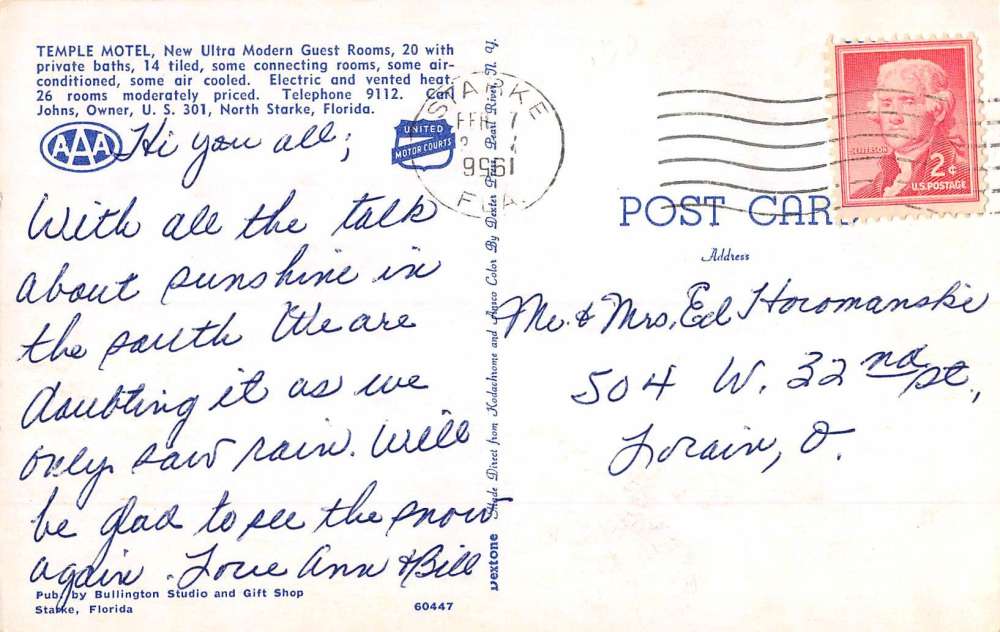 TEMPLE MOTEL, New Ultra Modern Guest Rooms, 20 with
private baths, 14 tiled, some connecting rooms, some air-
conditioned, some air cooled. Electric and vented heat.
26 rooms moderately priced. Telephone 9112. Carl
Johns, Owner, U. S. 301, North Starke, Florida.
AAA
UNITED
MOTOR COURTS
Hi you all;
With all the talk
about sunshine in
the south We are
doubting it as we
only saw rain. Will
be glad to see the snow
again. Love Ann & Bill
Pub. by Bullington Studio and Gift Shop
Starke, Florida
60447
Dextone Made Direct from Kodachrome and Ansco Color By Dexter Press, Pearl River, N. Y.
STARKE
FEB 7
1956
FLA.
JEFFERSON
2¢
U.S. POSTAGE
POST CARD
Address
Mr. & Mrs. Ed Horomanski
504 W. 32nd St.,
Lorain, O.